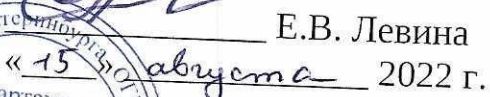 Е.В. Левина
« 15 » августа 2022 г.